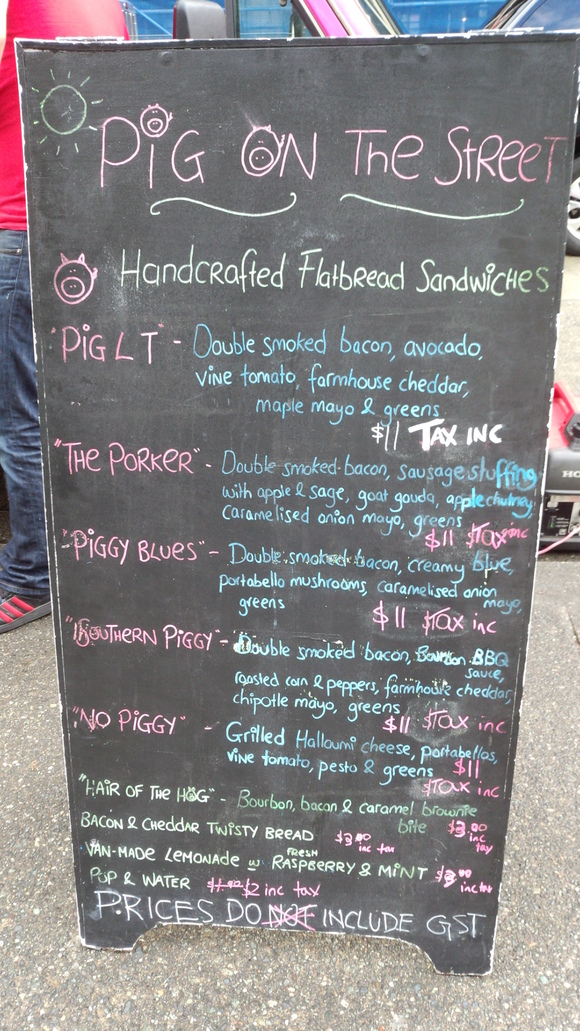 PiG ON The StReeT
Handcrafted Flatbread Sandwiches
"PiG L T" - Double smoked bacon, avocado,
vine tomato, farmhouse cheddar,
maple mayo & greens
$11 TAX INC
"THE PORKER" - Double smoked bacon, sausage stuffing
with apple & sage, goat gouda, apple chutney,
caramelised onion mayo, greens
$11 Tax inc
"PiGGY BLUES" - Double smoked bacon, creamy blue,
portabello mushrooms, caramelised onion
mayo,
greens
$11 Tax inc
"SOUTHERN PiGGY" - Double smoked bacon, Bourbon BBQ
sauce,
roasted corn & peppers, farmhouse cheddar,
chipotle mayo, greens
$11 Tax inc
"NO PiGGY" - Grilled Halloumi cheese, portabellos,
vine tomato, pesto & greens $11
Tax inc
"HAIR OF THE HOG" - Bourbon, bacon & caramel brownie
bite $3.00
inc
tax
BACON & CHEDDAR TWISTY BREAD $3.00
inc tax
VAN-MADE LEMONADE w FRESH RASPBERRY & MINT $3.00
inc tax
POP & WATER $2 inc tax
PRICES DO NOT INCLUDE GST
HO